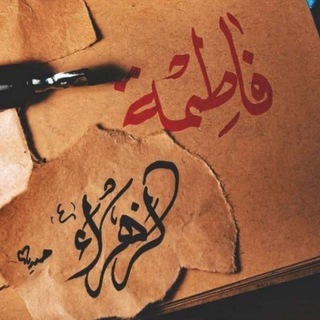 فَاطِمَة
الزهراء